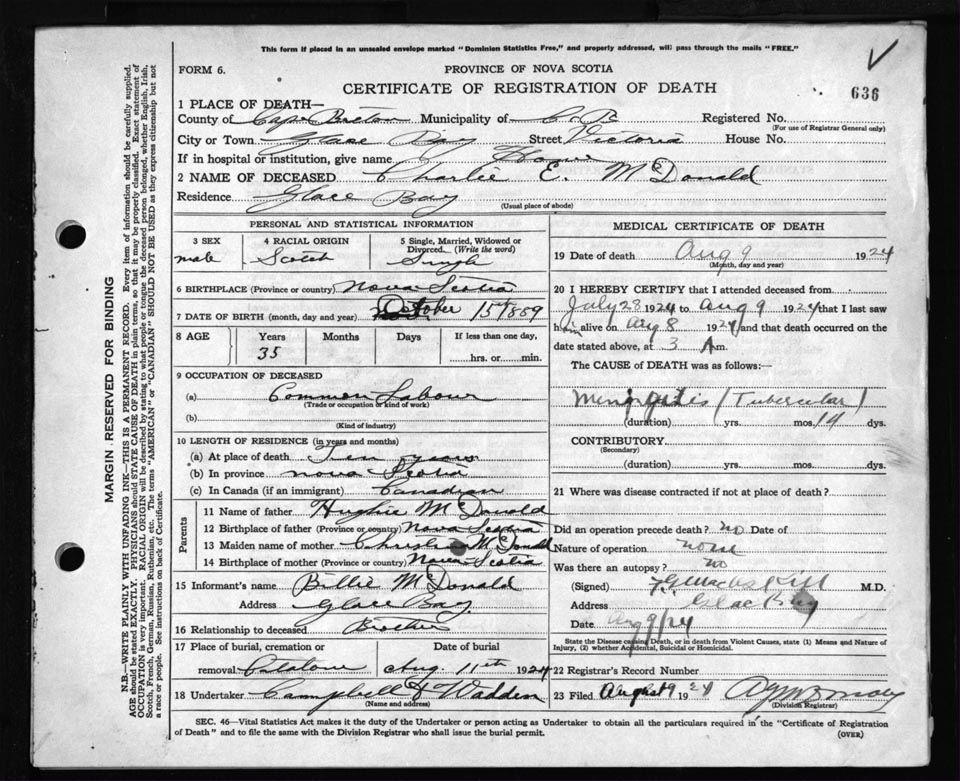 This form if placed in an unsealed envelope marked "Dominion Statistics Free," and properly addressed, will pass through the mails "FREE."
FORM 6.
PROVINCE OF NOVA SCOTIA
CERTIFICATE OF REGISTRATION OF DEATH
636
1 PLACE OF DEATH—
County of Cape Breton Municipality of C. B. Registered No.
(For use of Registrar General only)
City or Town Glace Bay Street Victoria House No.
If in hospital or institution, give name Home
2 NAME OF DECEASED Charlie E. McDonald
Residence Glace Bay
(Usual place of abode)
PERSONAL AND STATISTICAL INFORMATION
3 SEX
male
4 RACIAL ORIGIN
Scotch
5 Single, Married, Widowed or Divorced. (Write the word)
Single
6 BIRTHPLACE (Province or country) Nova Scotia
7 DATE OF BIRTH (month, day and year) October 15
8 AGE
Years
Months
Days
If less than one day,
35
hrs. or min.
9 OCCUPATION OF DECEASED
(a) Common Labour
(Trade or occupation or kind of work)
(b)
(Kind of industry)
10 LENGTH OF RESIDENCE (in years and months)
(a) At place of death Ten years
(b) In province nova Scotia
(c) In Canada (if an immigrant) Canadian
Parents
11 Name of father Hughie McDonald
12 Birthplace of father (Province or country) Nova Scotia
13 Maiden name of mother McDonald
14 Birthplace of mother (Province or country) Nova Scotia
15 Informant's name Billie McDonald
Address Glace Bay.
16 Relationship to deceased Brother
17 Place of burial, cremation or
Date of burial
removal Aug. 11th 1924
18 Undertaker Campbell & Wadden
(Name and address)
MEDICAL CERTIFICATE OF DEATH
19 Date of death Aug 9 1924
(Month, day and year)
20 I HEREBY CERTIFY that I attended deceased from
July 28 1924 to Aug 9 1924 that I last saw
him alive on Aug 8 1924 and that death occurred on
date stated above, at 3 A m.
The CAUSE of DEATH was as follows:—
Meningitis (Tubercular)
(duration) yrs. mos. 14 dys.
CONTRIBUTORY
(Secondary)
(duration) yrs. mos. dys.
21 Where was disease contracted if not at place of death?
Did an operation precede death? no Date of
Nature of operation none
Was there an autopsy? no
(Signed) M.D.
Address Glace Bay
Date Aug 9/24
State the Disease causing Death, or in death from Violent Causes, state (1) Means and Nature of
Injury, (2) whether Accidental, Suicidal or Homicidal.
22 Registrar's Record Number
23 Filed August 9 1924
(Division Registrar)
SEC. 46—Vital Statistics Act makes it the duty of the Undertaker or person acting as Undertaker to obtain all the particulars required in the "Certificate of Registration
of Death" and to file the same with the Division Registrar who shall issue the burial permit.
(OVER)
MARGIN RESERVED FOR BINDING
N.B.—WRITE PLAINLY WITH UNFADING INK—THIS IS A PERMANENT RECORD. Every item of information should be carefully supplied.
AGE should be stated EXACTLY. PHYSICIANS should STATE CAUSE OF DEATH in plain terms, so that it may be properly classified. Exact statement of
OCCUPATION is very important. RACIAL ORIGIN will be described by stating to what people or tongue the deceased person belonged, whether English, Irish,
Scotch, French, German, Russian, Ruthenian, etc. The terms "AMERICAN" or "CANADIAN" SHOULD NOT BE USED as they express citizenship but not
a race or people. See instructions on back of Certificate.